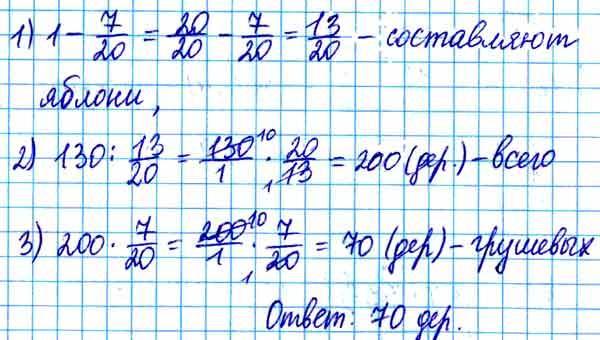 1) 1 - 7/20 = 20/20 - 7/20 = 13/20 - составляют
яблони,
2) 130 : 13/20 = 130 10/1 · 20/13 1 = 200 (дер.) - всего
3) 200 · 7/20 = 200 10/1 · 7/20 1 = 70 (дер) - грушевых
Ответ: 70 дер.